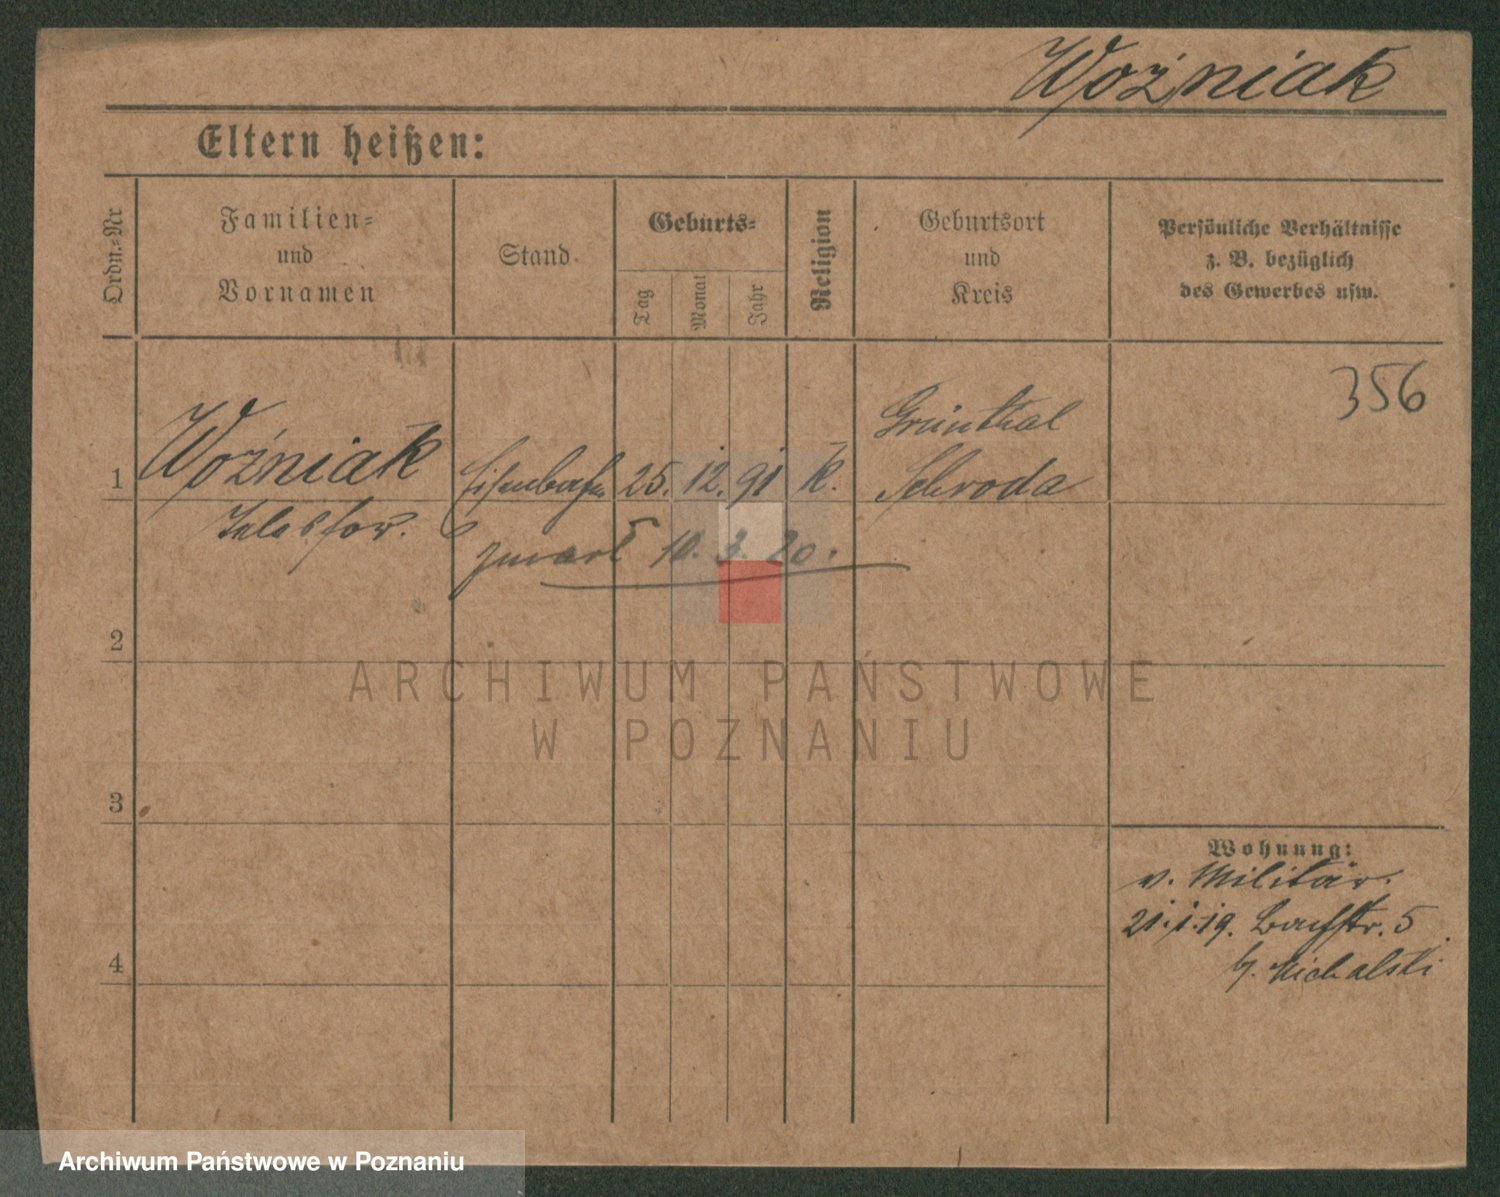 Woźniak
Eltern heißen:
Ordn.=Nr
Familien=
und
Vornamen
Stand
Geburts=
Tag
Monat
Jahr
Religion
Geburtsort
und
Kreis
Persönliche Verhältnisse
z. B. bezüglich
des Gewerbes usw.
356
1
Woźniak
Telesfor.
25. 12. 91
k.
Grünthal
Schroda
zmarł 10. 3. 20.
2
ARCHIWUM PAŃSTWOWE
W POZNANIU
3
Wohnung:
v. Militär.
21.1.19. 5
b. Michalski
4
Archiwum Państwowe w Poznaniu